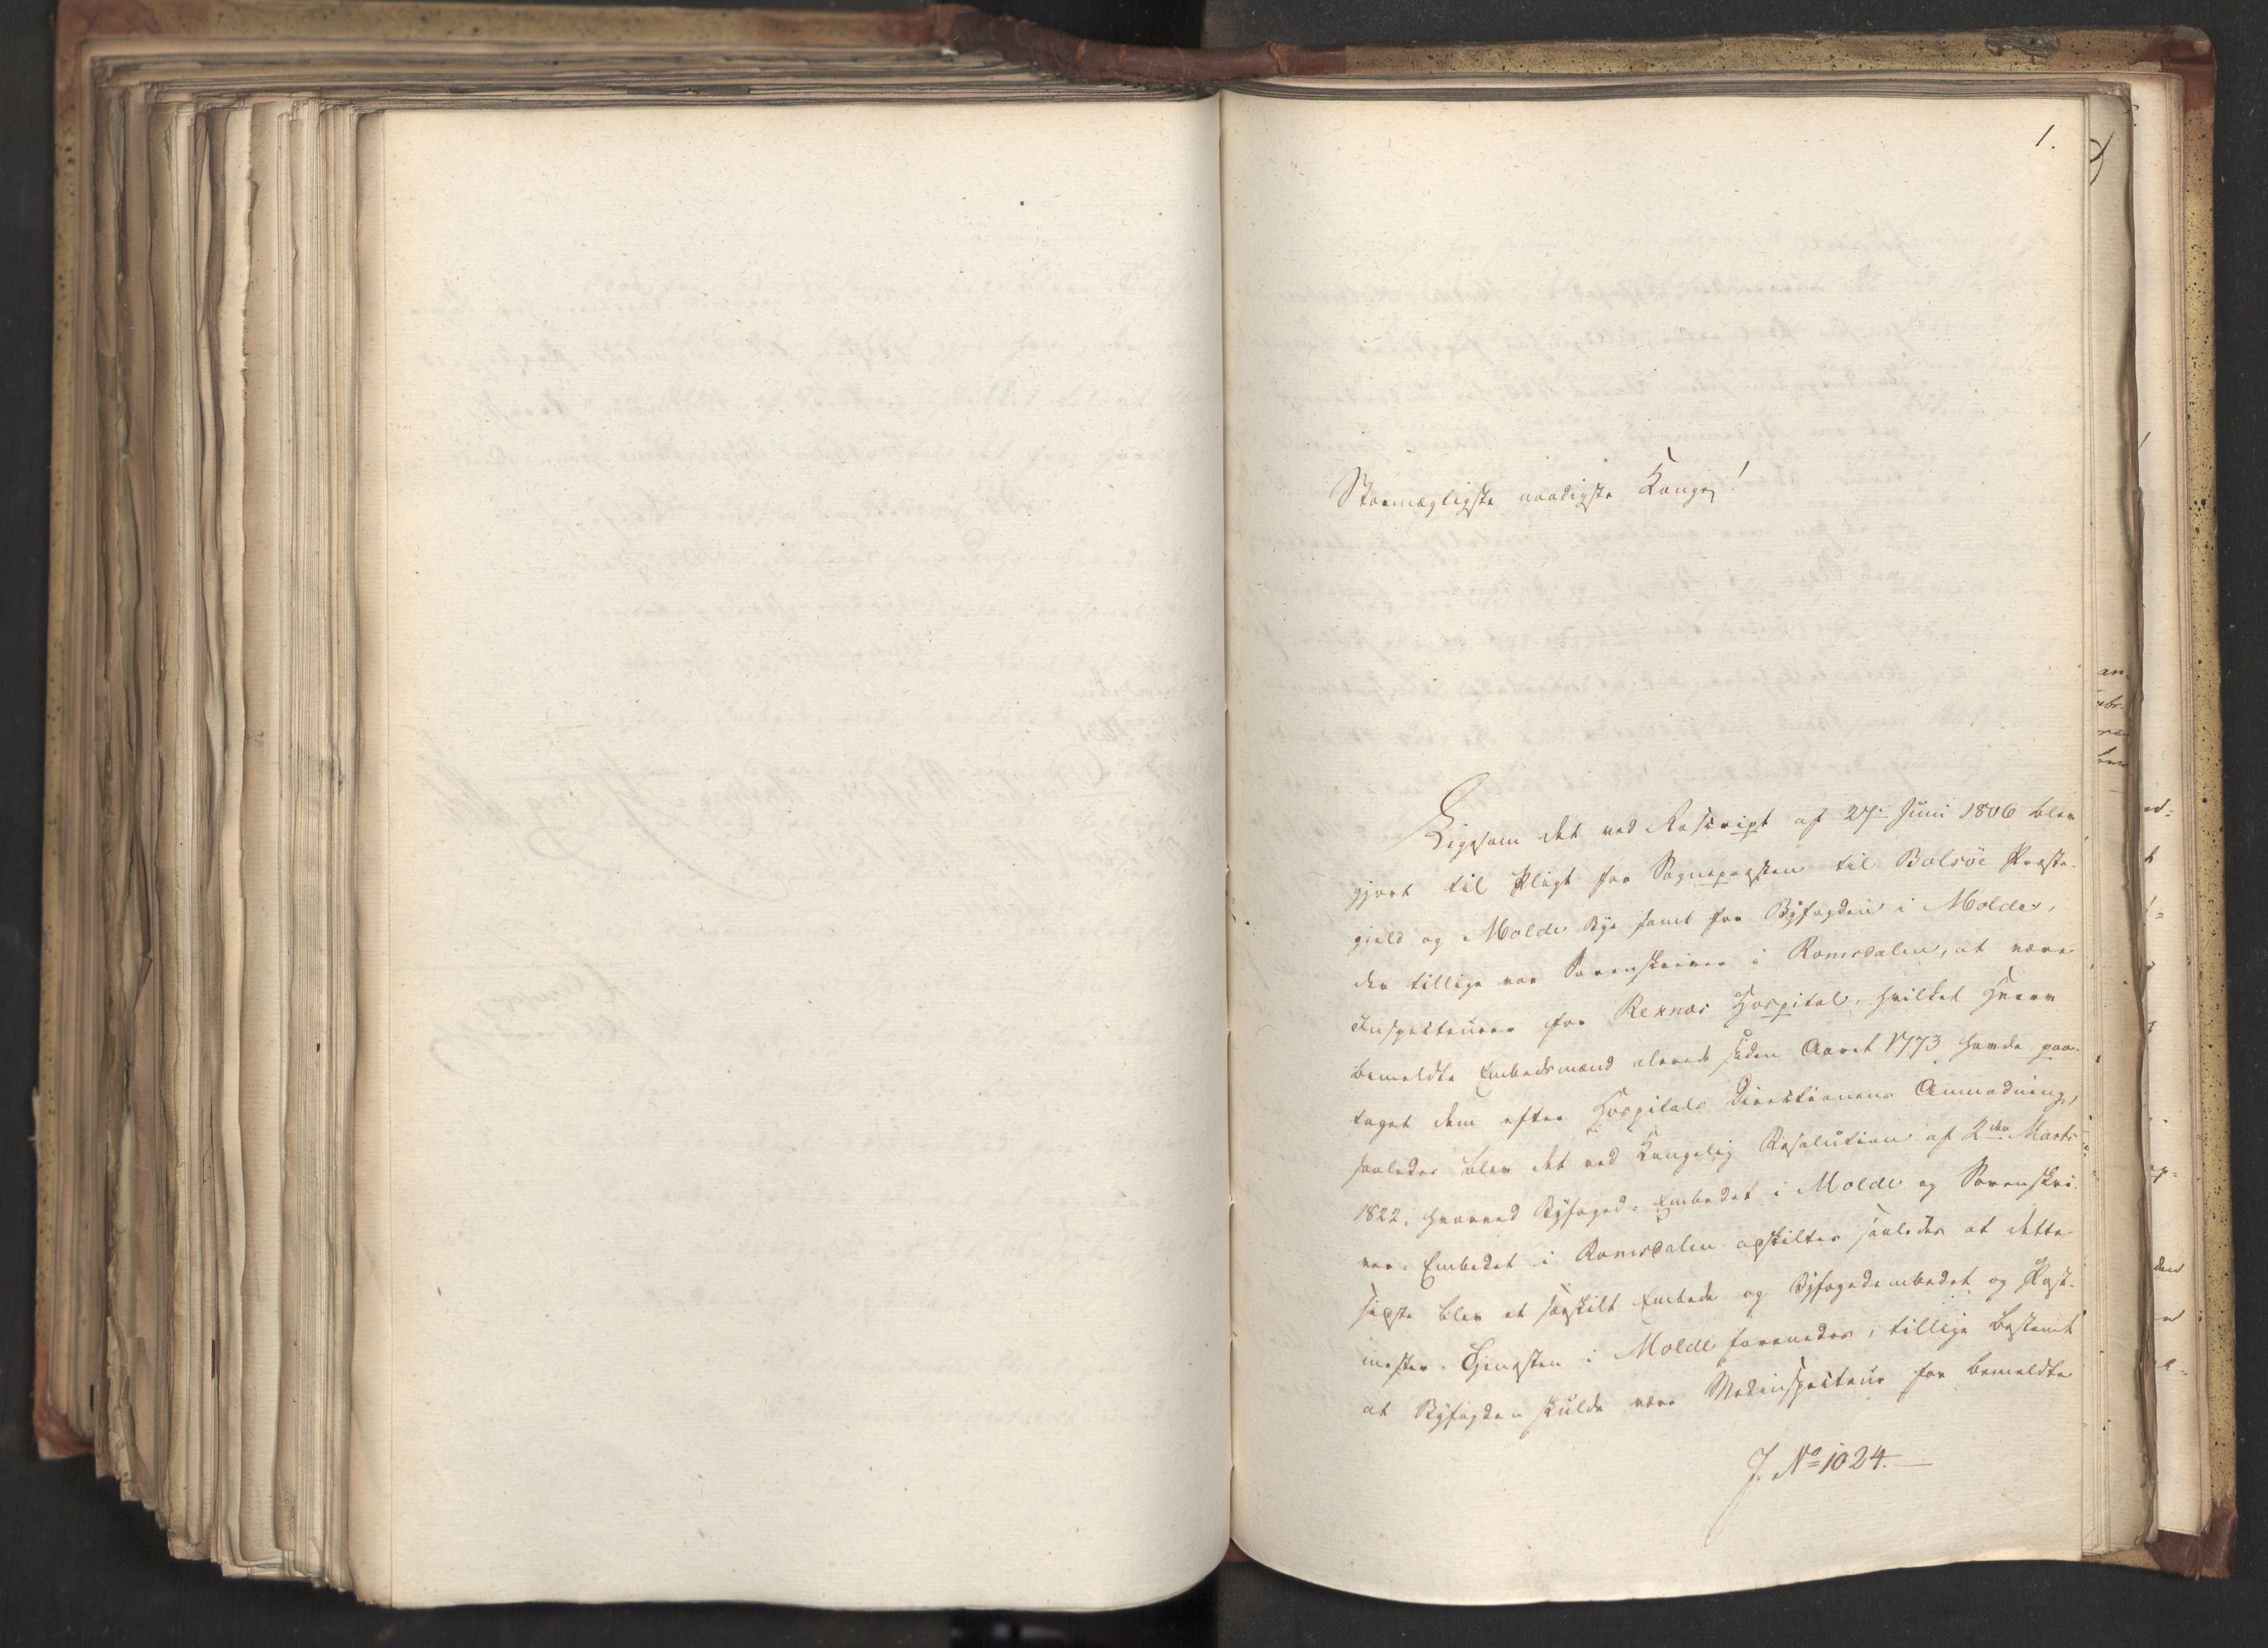 1.
Stormægtigste naadigste Konge!
Ligesom det ved Rescript af 27. Juni 1806 blev
gjort til Pligt for Sognepræsten til Bolsöe Præste-
gjeld og Molde Bye samt for Byfogden i Molde,
der tillige var Sorenskriver i Romsdalen, at være
Inspecteurer for Reknæs Hospital, hvilket Hverv
bemeldte Embedsmænd alerede siden Aaret 1773 havde paa-
taget dem efter Hospitals Direktionens Anmodning,
saaledes blev det ved Kongelig Resolution af 2den Marts
1822, hvorved Byfoged-Embedet i Molde og Sorenskri-
ver-Embedet i Romsdalen adskiltes saaledes at dette
sidste blev et særskilt Embede og Byfogedembedet og Post-
mester-Tjenesten i Molde forenedes, tillige bestemt
at Byfogden skulde være Medinspecteur for bemeldte
J. No 1024.